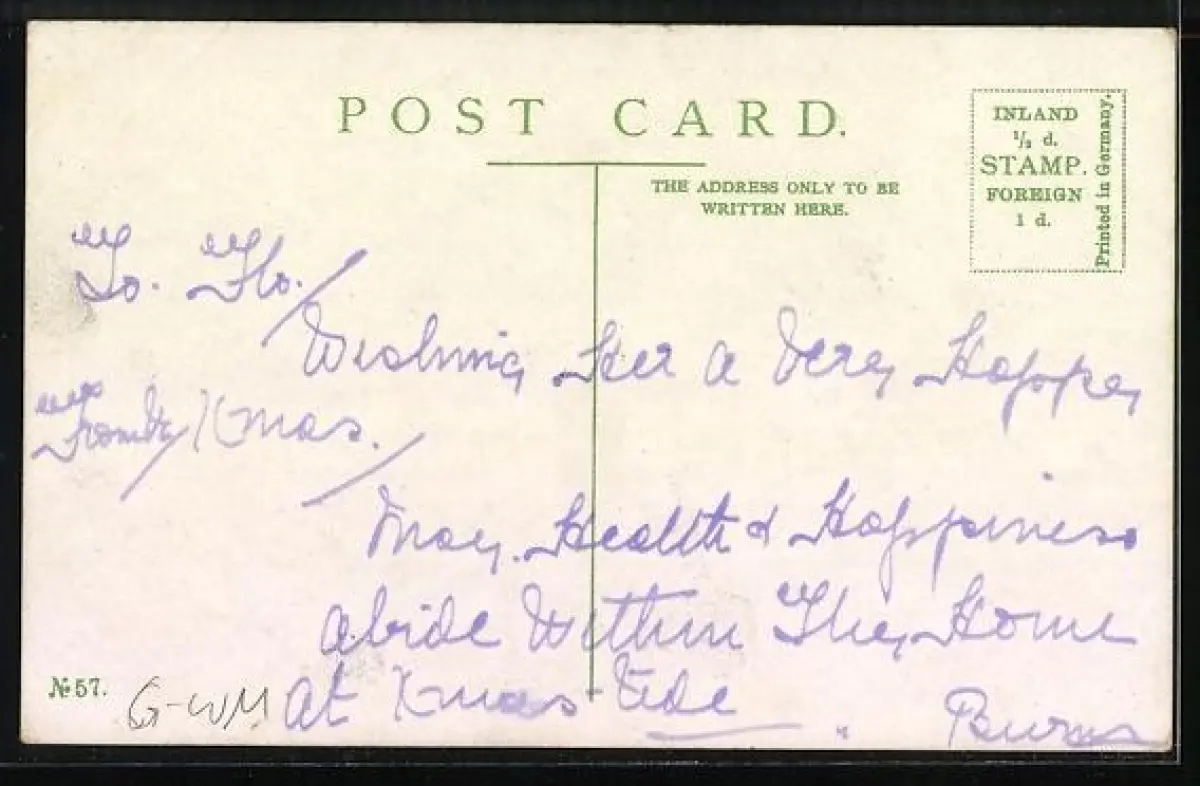 POST CARD.
THE ADDRESS ONLY TO BE
WRITTEN HERE.
INLAND
½ d.
STAMP.
FOREIGN
1 d.
Printed in Germany.
To. Flo.
Wishing Her A Very Happy
Xmas.
May Health & Happiness
Abide Within Thy Home
At Xmas tide
Burns
№ 57.
G-WM